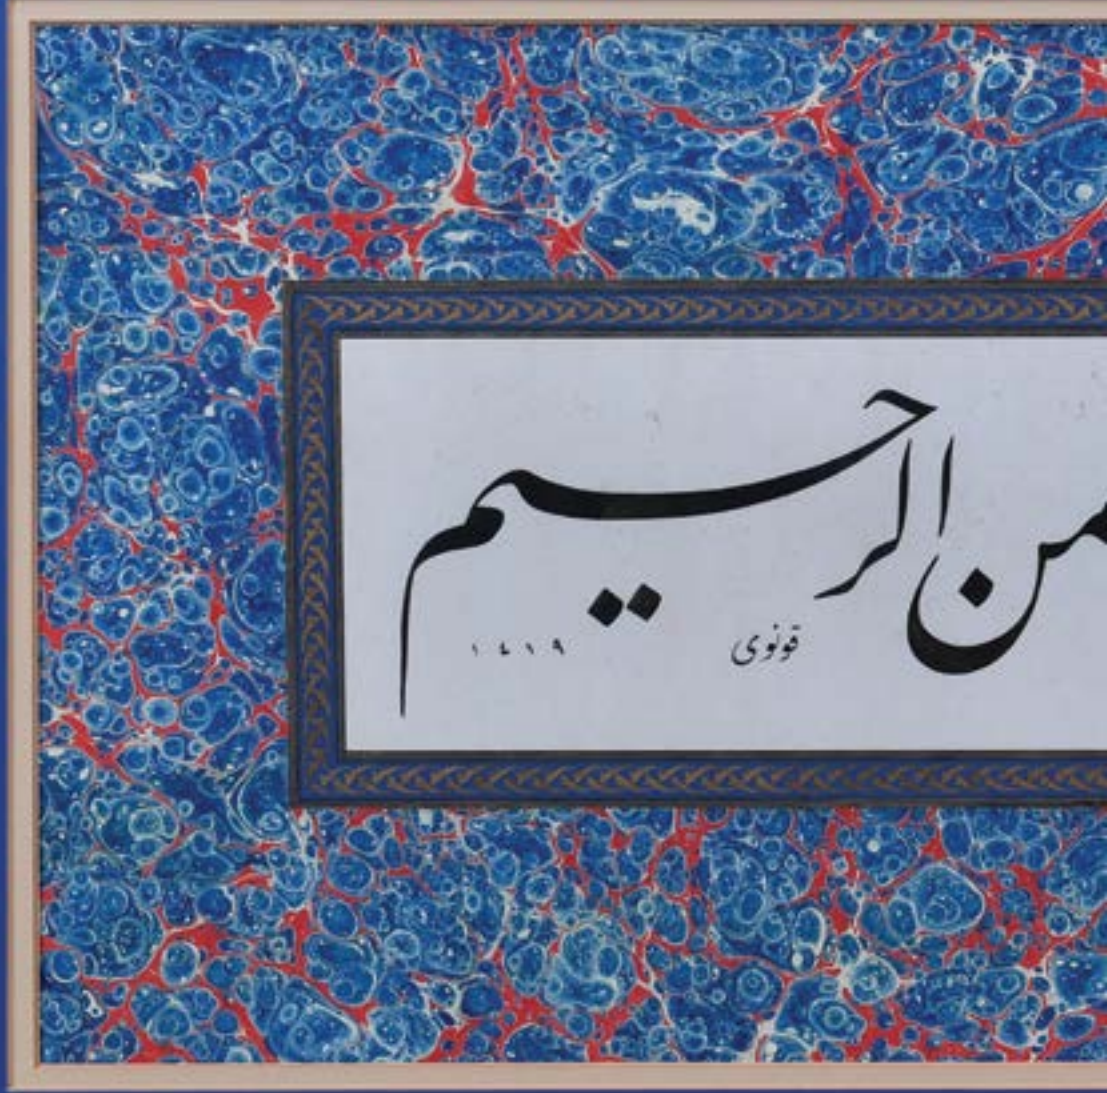 ـمن الرحيم
قونوی ١٤١٩